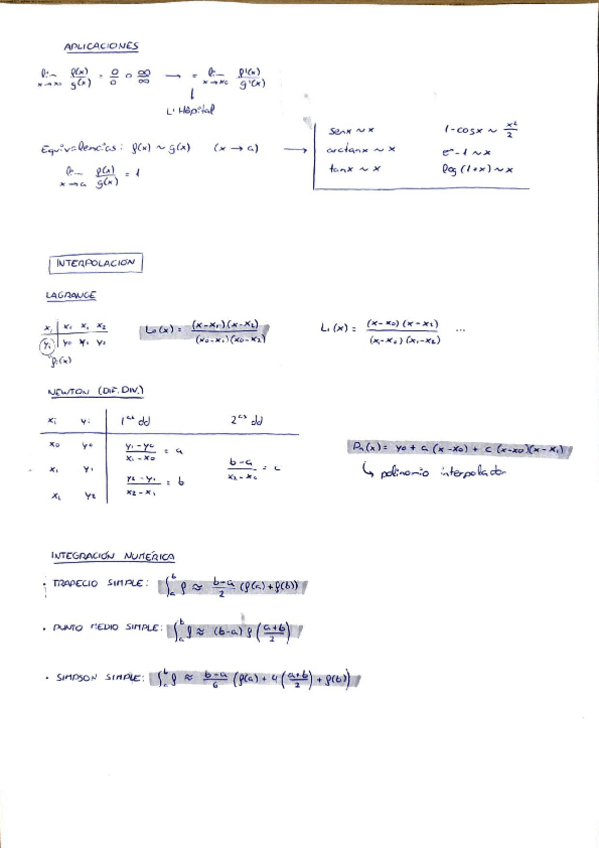 APLICACIONES
lim x→x₀ f(x)/g(x) = 0/0 o ∞/∞ → = lim x→x₀ f'(x)/g'(x)
↓
L'Hôpital
Equivalencias: f(x) ~ g(x) (x → a) →
lim x→a f(x)/g(x) = 1
senx ~ x 1-cosx ~ x²/2
arctanx ~ x
tanx ~ x log (1+x) ~ x
INTERPOLACIÓN
LAGRANGE
xᵢ | x₀ x₁ x₂
yᵢ | y₀ y₁
f(x)
L₀(x) = (x-x₁)(x-x₂)/(x₀-x₁)(x₀-x₂) L₁(x) = (x-x₀)(x-x₂)/(x₁-x₀)(x₁-x₂) ...
NEWTON (DIF. DIV.)
xᵢ yᵢ 1ᵃˢ dd 2ᵃˢ dd
x₀ y₀ (y₁-y₀)/(x₁-x₀) = a
x₁ y₁ (y₂-y₁)/(x₂-x₁) = b (b-a)/(x₂-x₀) = c
x₂ y₂
Pₙ(x) = y₀ + a (x-x₀) + c (x-x₀)(x-x₁)
↳ polinomio interpolador
INTEGRACIÓN NUMÉRICA
· TRAPECIO SIMPLE: ∫ₐᵇ f ≈ (b-a)/2 (f(a)+f(b))
· PUNTO MEDIO SIMPLE: ∫ₐᵇ f ≈ (b-a) f((a+b)/2)
· SIMPSON SIMPLE: ∫ₐᵇ f ≈ (b-a)/6 (f(a) + 4((a+b)/2) + f(b))